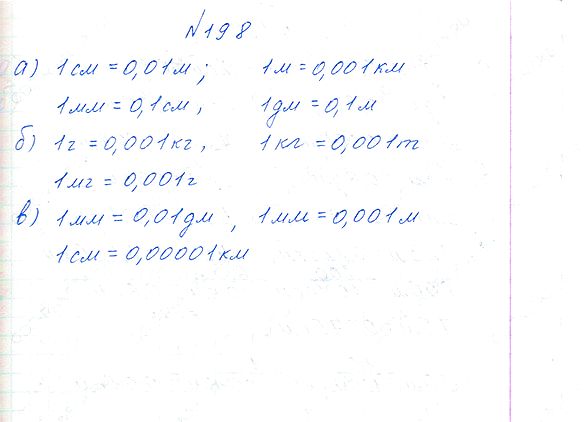 №198
а) 1см = 0,01м; 1м = 0,001км
1мм = 0,1см, 1дм = 0,1м
б) 1г = 0,001кг, 1кг = 0,001т
1мг = 0,001г
в) 1мм = 0,01дм, 1мм = 0,001м
1см = 0,00001км